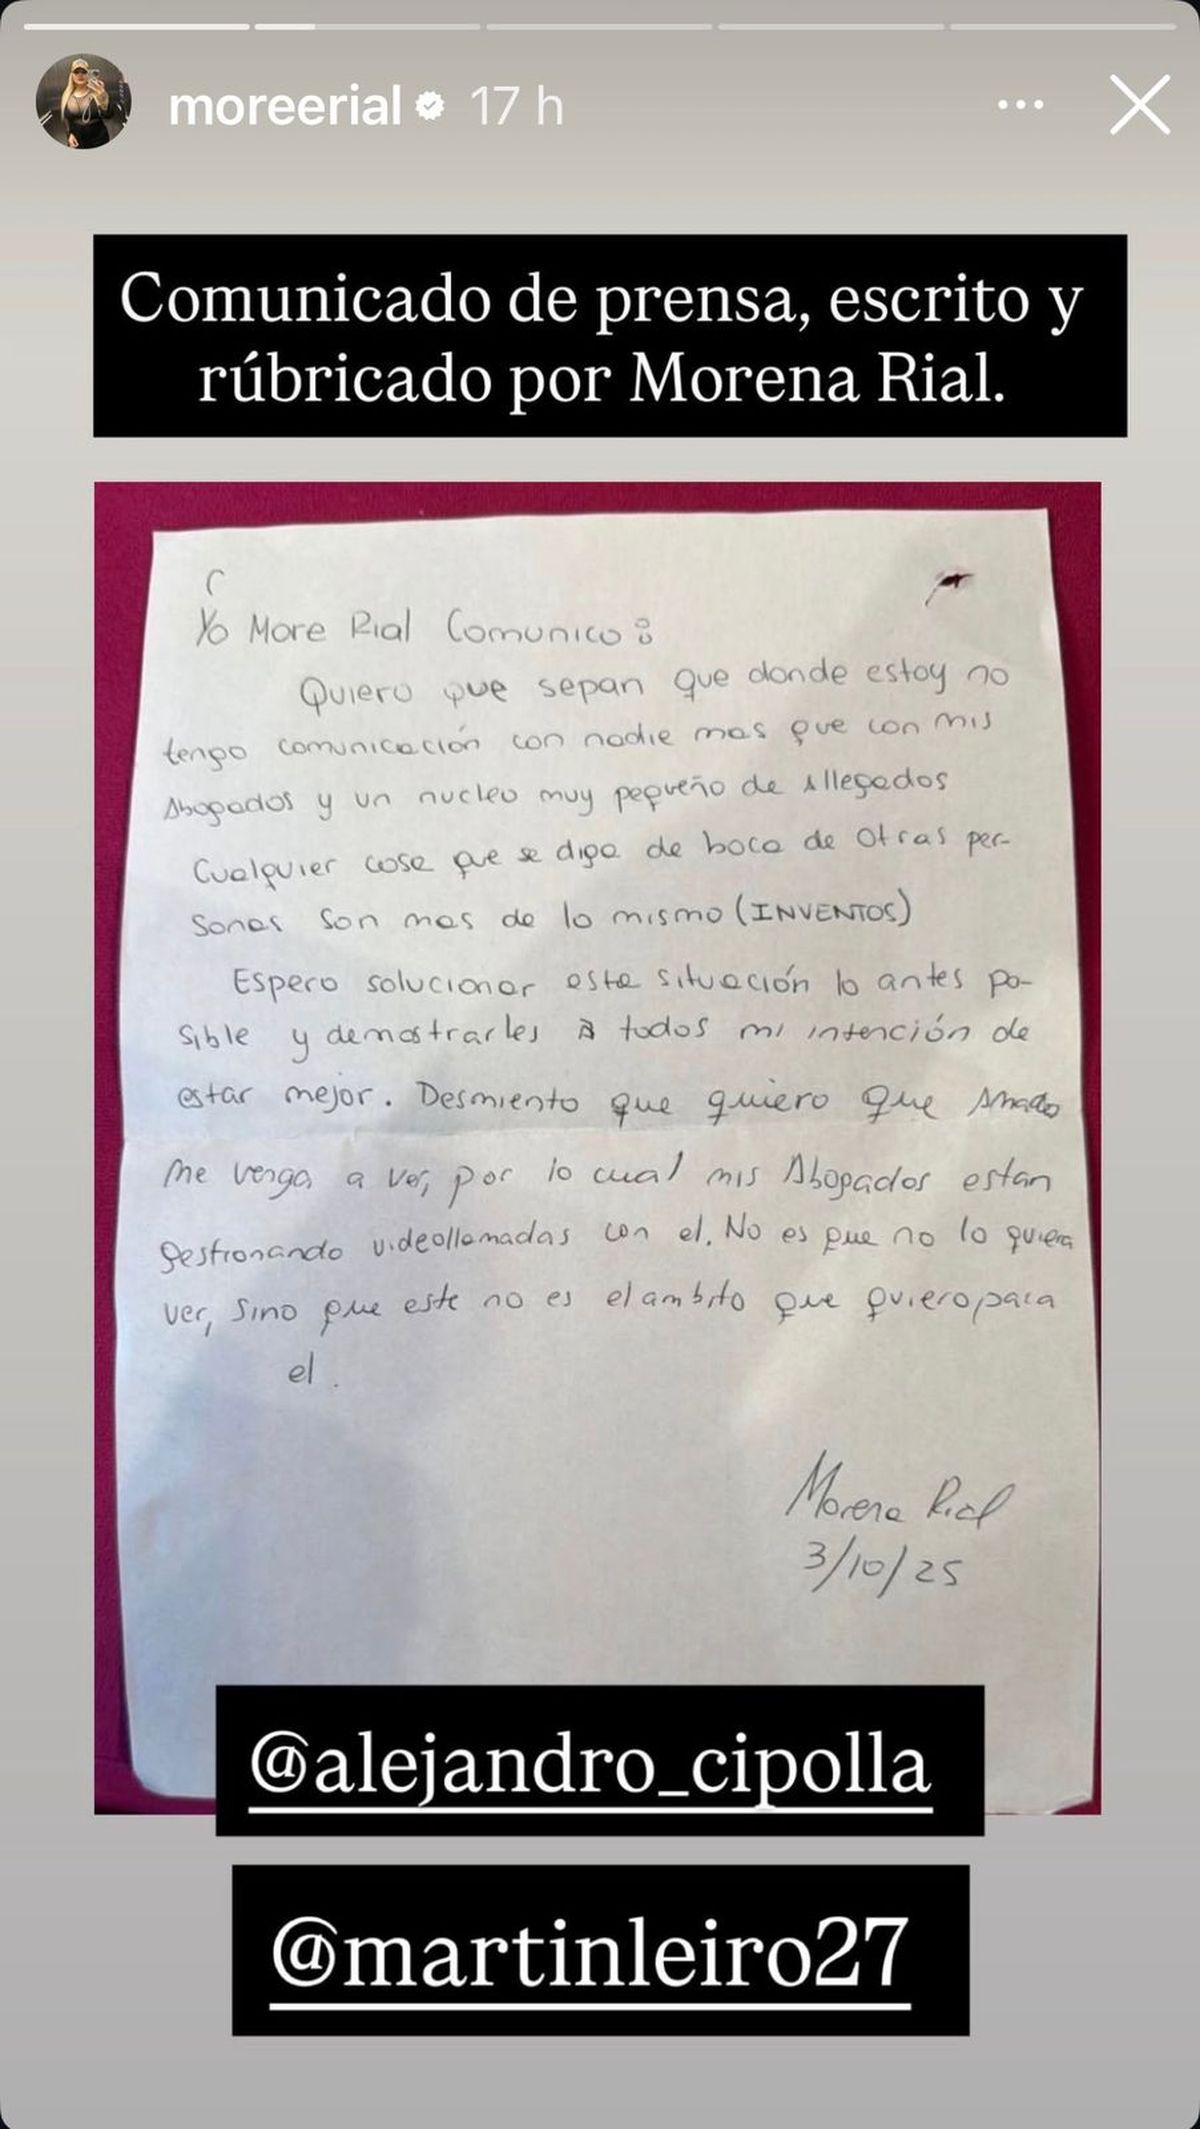 moreerial 17 h
Comunicado de prensa, escrito y
rúbricado por Morena Rial.
Yo More Rial Comunico:
Quiero que sepan que donde estoy no
tengo comunicación con nadie mas que con mis
Abogados y un nucleo muy pequeño de Allegados
Cualquier cosa que se diga de boca de otras per-
sonas son mas de lo mismo (INVENTOS)
Espero solucionar esta situación lo antes po-
sible y demostrarles a todos mi intención de
estar mejor. Desmiento que quiero que Amado
me venga a ver, por lo cual mis Abogados estan
gestionando videollamadas con el. No es que no lo quiera
ver, sino que este no es el ambito que quiero para
el.
Morena Rial
3/10/25
@alejandro_cipolla
@martinleiro27